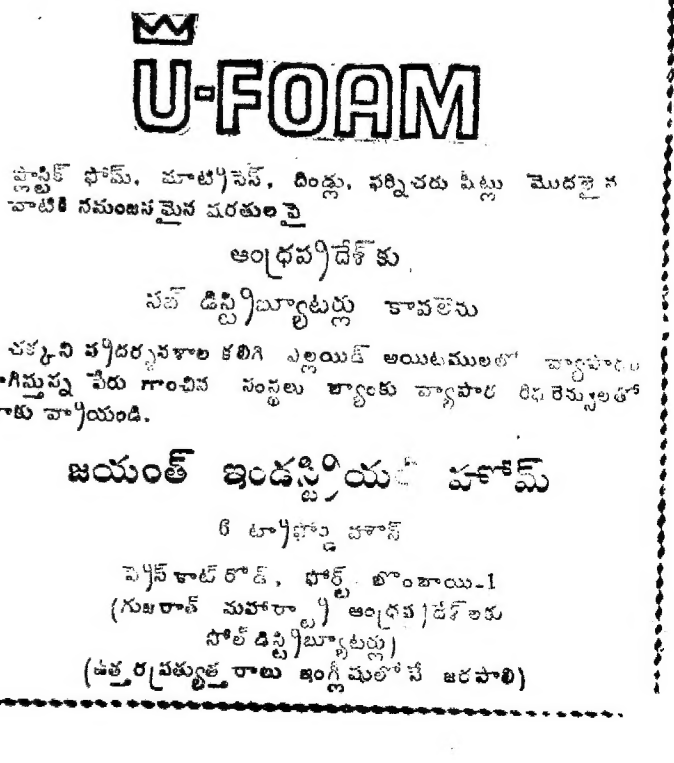 U-FOAM
ప్లాస్టిక్ ఫోమ్, మాట్రిసెస్, దిండ్లు, ఫర్నిచరు షీట్లు మొదలైన
వాటికి సమంజసమైన షరతులపై
ఆంధ్రప్రదేశ్‌కు
సబ్ డిస్ట్రిబ్యూటర్లు కావలెను
చక్కని ప్రదర్శనశాల కలిగి ఎల్లయిడ్ అయిటములలో వ్యాపారం
గిస్తున్న పేరు గాంచిన సంస్థలు బ్యాంకు వ్యాపార రిఫరెన్సులతో
కు వ్రాయండి.
జయంత్ ఇండస్ట్రియల్ హోమ్
6 హౌస్
ప్రిస్కాట్ రోడ్, ఫోర్ట్ బొంబాయి-1
(గుజరాత్ మహారాష్ట్ర ఆంధ్రప్రదేశ్‌లకు
సోల్ డిస్ట్రిబ్యూటర్లు)
(ఉత్తరప్రత్యుత్తరాలు ఇంగ్లీషులోనే జరపాలి)